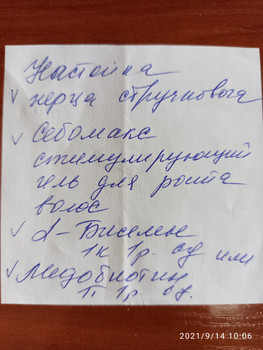 Настойка
✓ перца стручкового
✓ Себомакс
стимулирующий
гель для роста
волос
✓ d-Биселен
1к 1р. сд или
✓ Медобиотин
1т 1р. сд.
2021/9/14 10:06